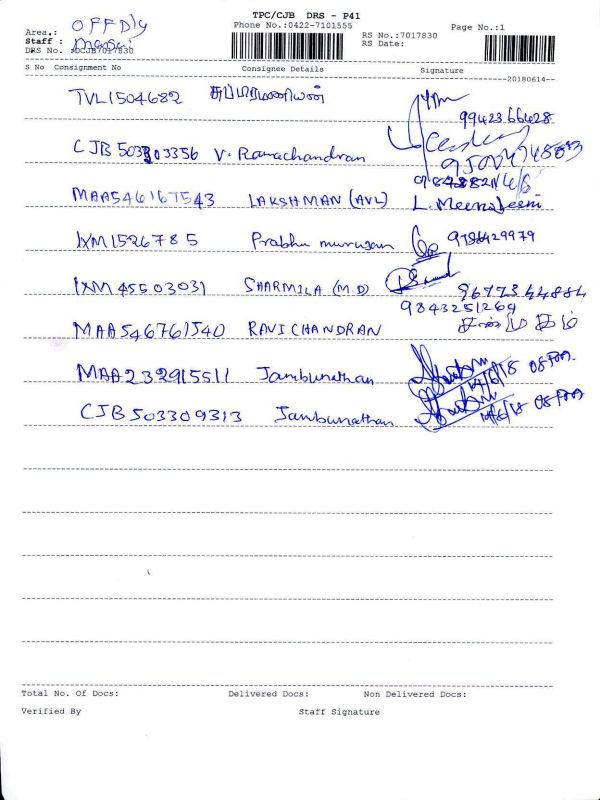 TPC/CJB DRS - P41
Area.: OFFDly
Phone No.:0422-7101555
Page No.:1
Staff :
RS No.:7017830
DRS No. :DCJB7017830
RS Date:
S No Consignment No Consignee Details Signature
--20180614--
TVL1504682 சுப்பிரமணியன் 9942366428
CJB 503303356 V. Ramachandran
MAA546167543 LAKSHMAN (AVL) L. Meenakshi
IXM1526785 Prabhu murugan 9786429979
IXM 45503031 SHARMILA (M.D) 9677344884
9843251269
MAA546761540 RAVICHANDRAN சண்முகம்
MAA232915511 Jambunathan 14/6/18
CJB503309313 Jambunathan 14/6/18
Total No. Of Docs: Delivered Docs: Non Delivered Docs:
Verified By Staff Signature